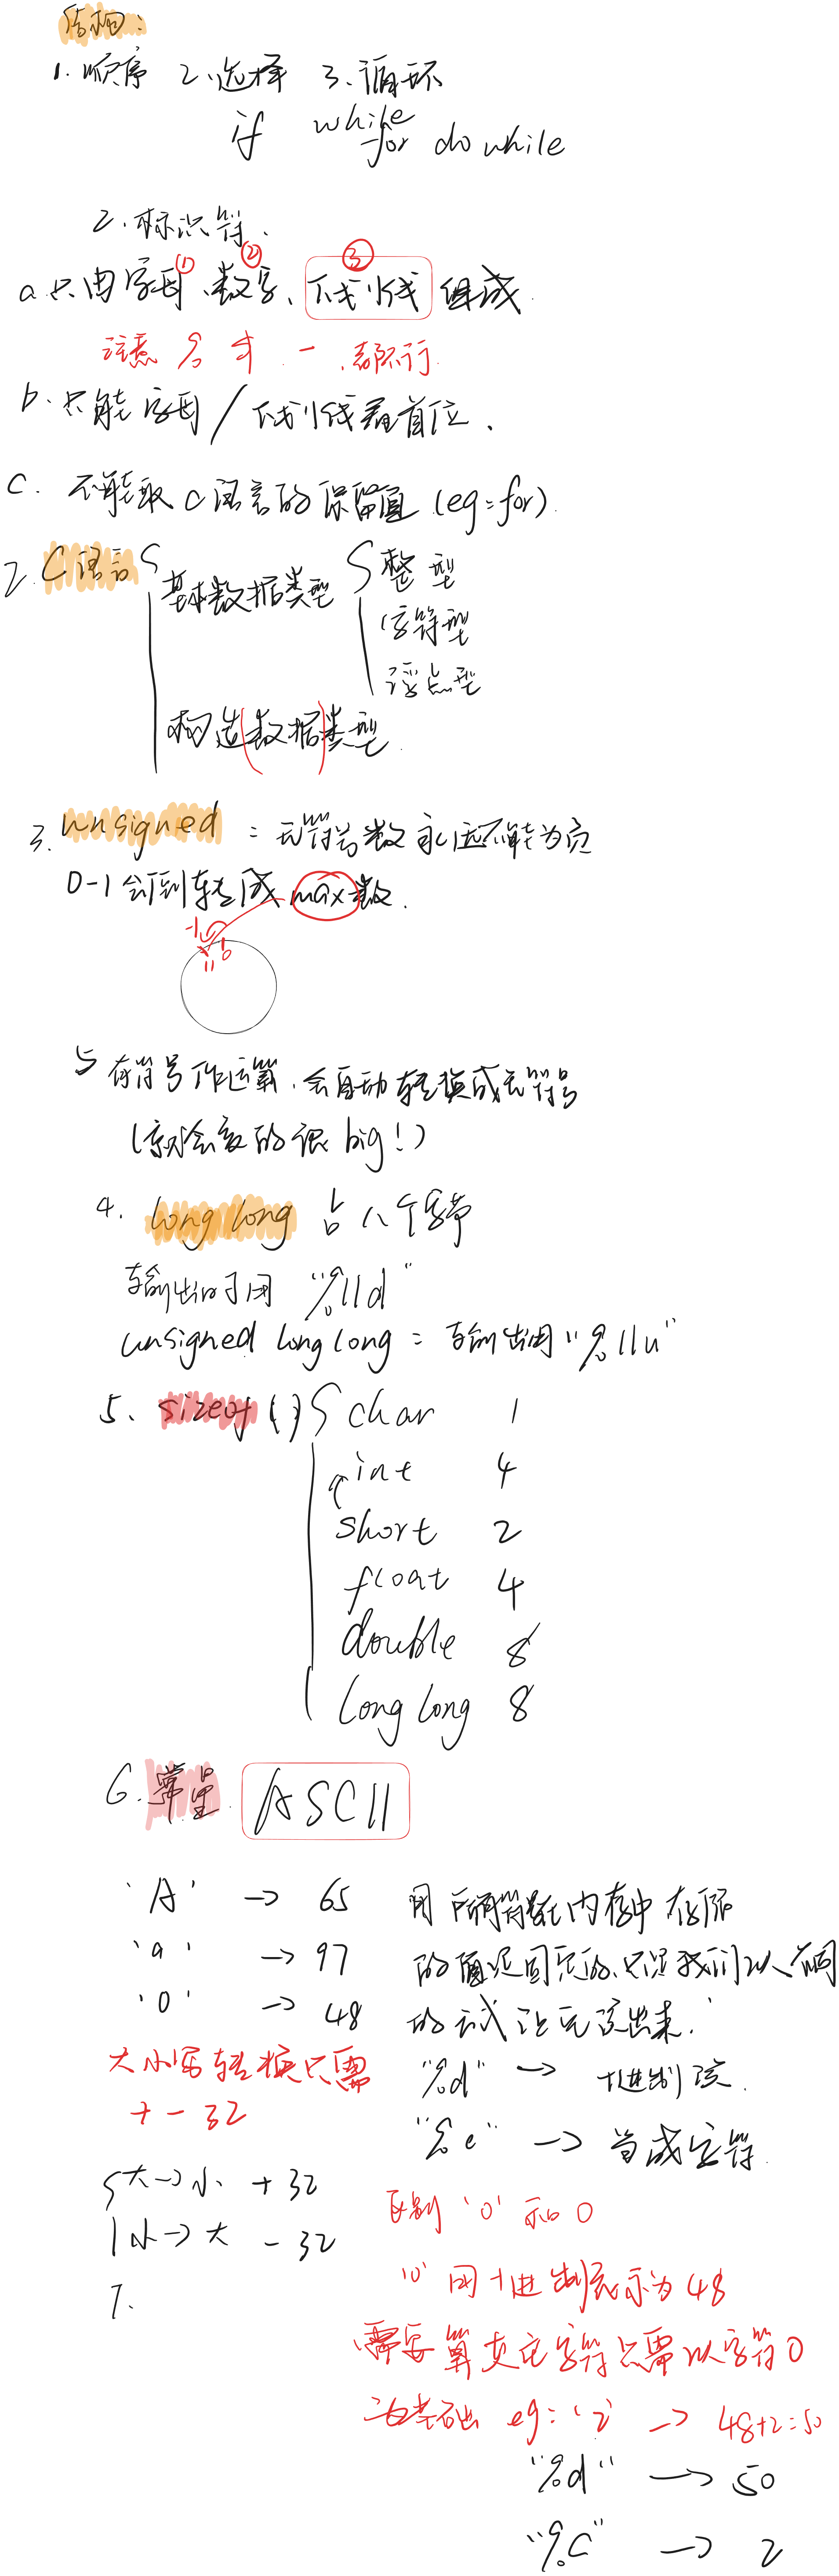 结构:
1.顺序 2.选择 3.循环
if while for do while
2.标识符.
a.只由字母①、数字②、下划线③组成.
注意 % * - .都不行
b.只能字母/下划线在首位.
c. 不能取C语言的保留值(eg:for).
2.C语言
基本数据类型
整型
字符型
浮点型
构造(数据)类型.
3.unsigned : 无符号数永远不能为负
0-1会倒转成max数.
-1 0
11
与有符号作运算.会自动转换成无符号
(就会变的很big!)
4. long long 占八个字节
输出时用 "%lld"
unsigned long long : 输出用"%llu"
5. sizeof()
char 1
int 4
short 2
float 4
double 8
long long 8
6.常量. ASCII
'A' → 65
'a' → 97
'0' → 48
大小写转换只需
+ - 32
大→小 + 32
小→大 - 32
7.
内存中
的值是固定的.只是我们以不同
的方式让它读出来.
"%d" → 十进制读.
"%c" → 当成字符.
区别 '0' 和 0
'0' 用十进制表示为 48
需要算其它字符只需以字符0
为基础 eg: '2' → 48+2=50
"%d" → 50
"%c" → 2